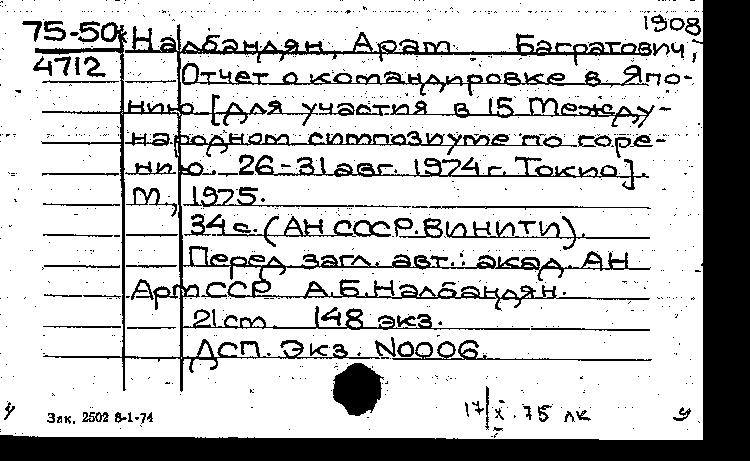 1908
75-50к
4712
Налбандян, Арам Багратович,
Отчет о командировке в Япо-
нию [для участия в 15 Между-
народном симпозиуме по горе-
нию. 26-31 авг. 1974 г. Токио].
М., 1975.
34 с. (АН СССР. ВИНИТИ).
Перед загл. авт.: акад. АН
АрмССР А.Б. Налбандян.
21 cm. 148 экз.
ДСП. Экз. N0006.
Зак. 2502 8-1-74
17/X.75 лк